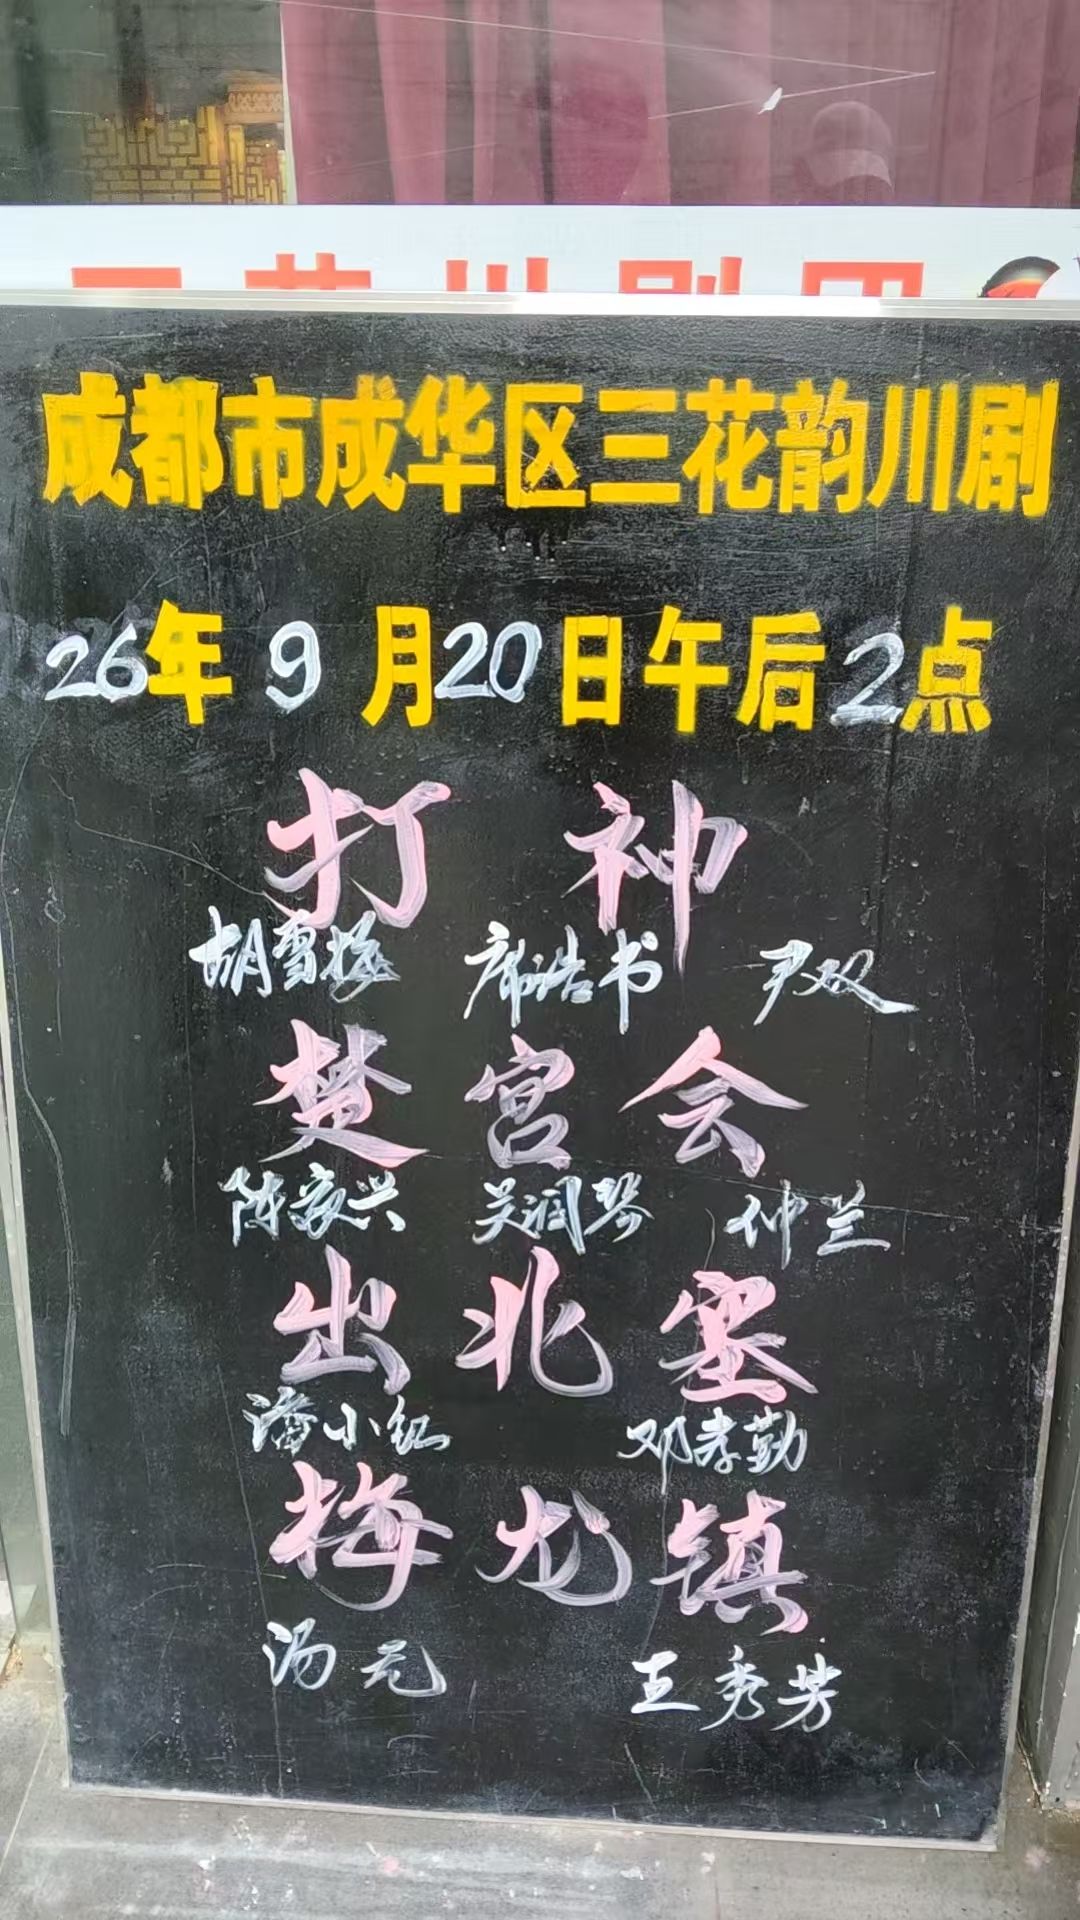 成都市成华区三花韵川剧
26年9月20日午后2点
打神
胡雪梅 席浩书 尹双
楚宫会
陈家兴 吴润琴 仲兰
出北塞
潘小红 邓孝勤
梅龙镇
汤元 王秀芳